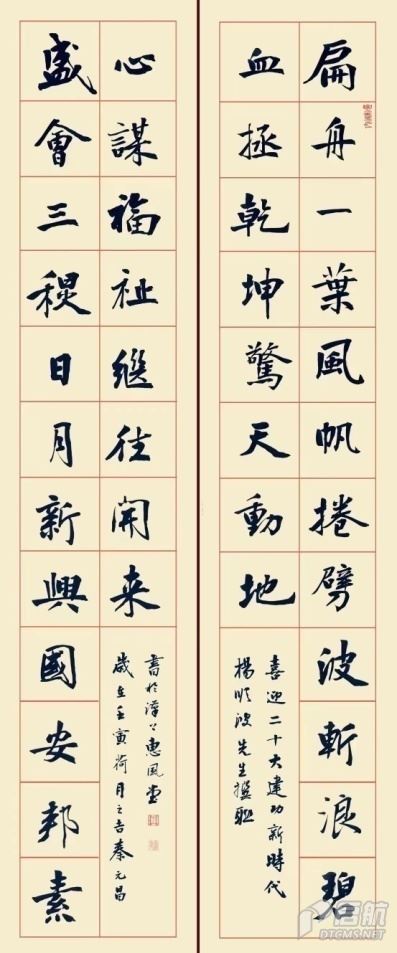 扁舟一葉風帆捲劈波斬浪碧
血拯乾坤驚天動地
喜迎二十大建功新時代
楊順波先生撰聯
盛會三稷日月新興國安邦素
心謀福祉繼往開来
歲在壬寅荷月之吉秦元昌
書於漳惠風堂
信航
DTCMS.NET